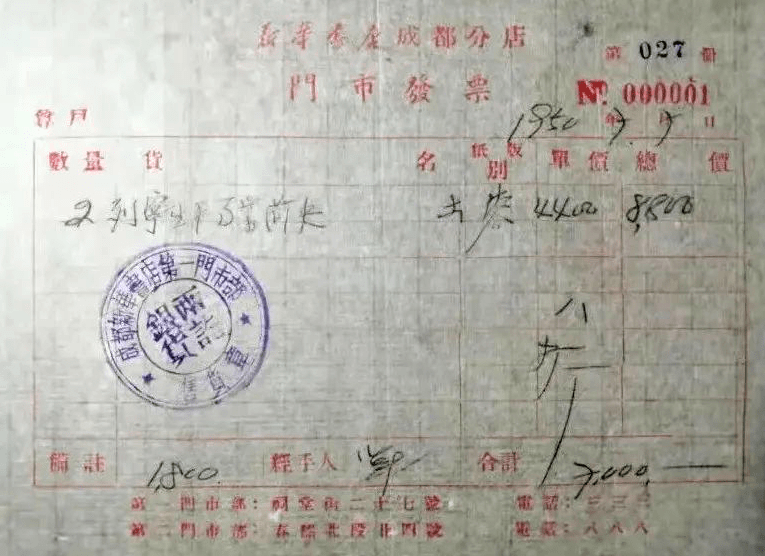 新华书店成都分店
第 027 冊
門市發票
No. 000001
1950年7月7日
數量 貨 名 紙版別 單價 總價
2 列寧生平事業简史 4400 8,800
成都新華書店第一門市部
銀貨兩訖
售貨章
八
備註 1,800. 經手人 合計 7,000,—
第一門市部：祠堂街二十七號 電話：三三三
第二門市部：春熙北段廿四號 電話：八八八